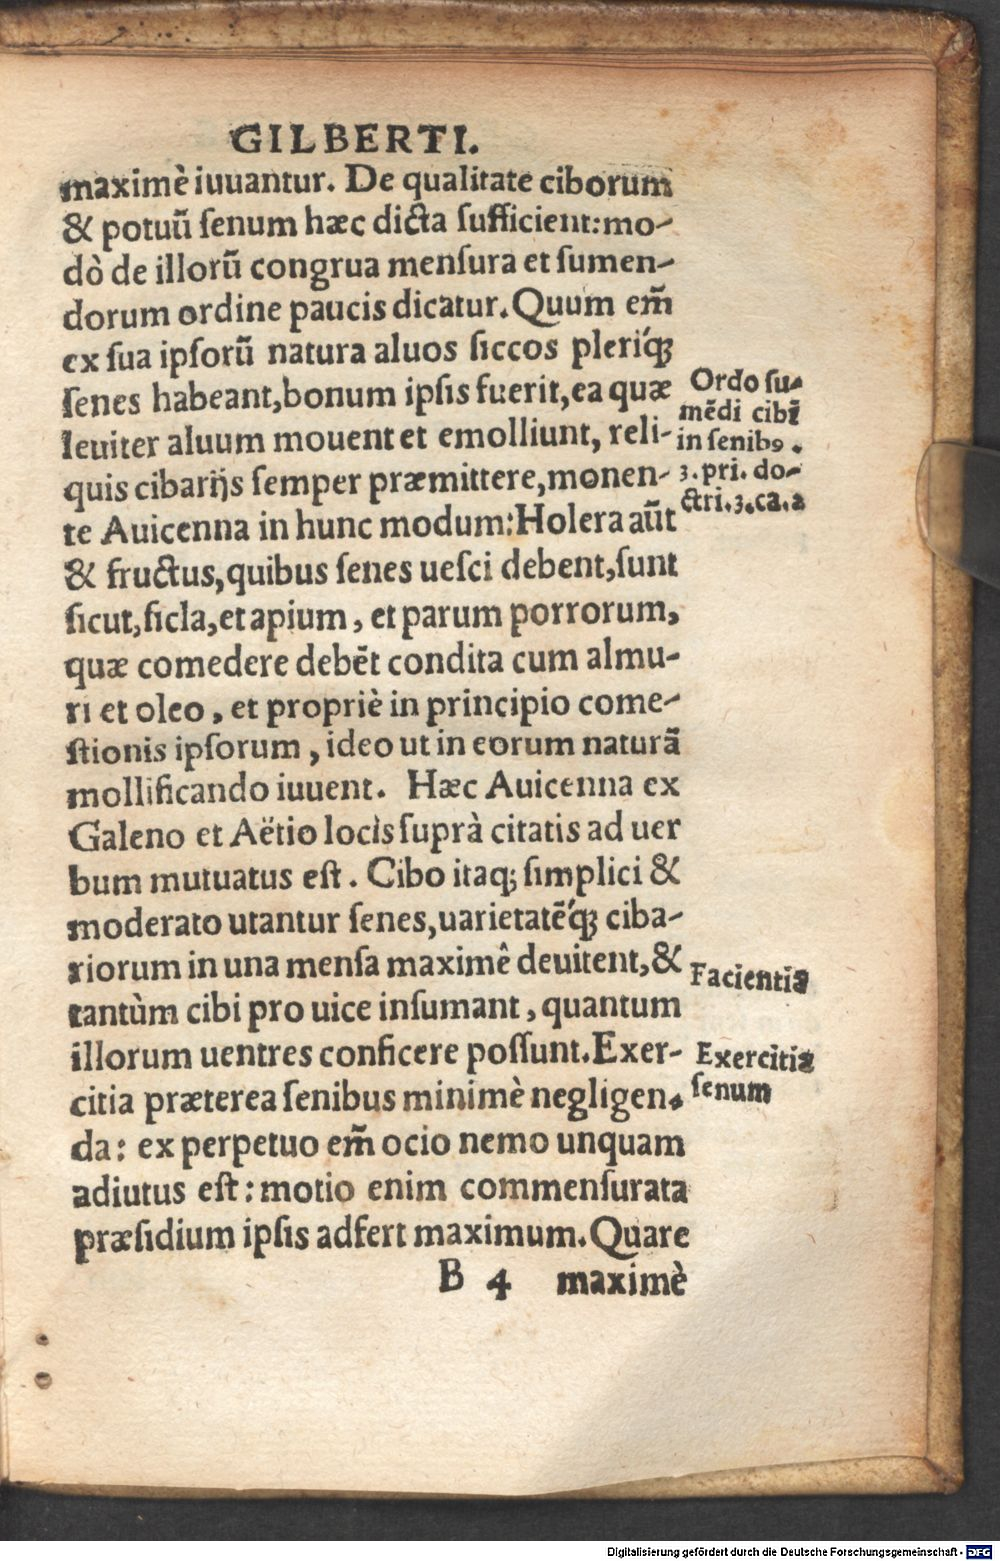 GILBERTI.
maximè iuuantur. De qualitate ciborum
& potuū ſenum hæc dicta ſufficient: mo-
dò de illorū congrua menſura et ſumen-
dorum ordine paucis dicatur. Quum em̃
ex ſua ipſorū natura aluos ſiccos pleriq́ꝫ
ſenes habeant, bonum ipſis fuerit, ea quæ
leuiter aluum mouent et emolliunt, reli-
quis cibarijs ſemper præmittere, monen-
te Auicenna in hunc modum: Holera aūt
& fructus, quibus ſenes ueſci debent, ſunt
ſicut, ſicla, et apium, et parum porrorum,
quæ comedere debēt condita cum almu-
ri et oleo, et propriè in principio come-
ſtionis ipſorum, ideo ut in eorum naturā
mollificando iuuent. Hæc Auicenna ex
Galeno et Aëtio locis ſuprà citatis ad uer
bum mutuatus eſt. Cibo itaqꝫ ſimplici &
moderato utantur ſenes, uarietatēq́ꝫ ciba-
riorum in una menſa maximê deuitent, &
tantùm cibi pro uice inſumant, quantum
illorum uentres conficere poſſunt. Exer-
citia præterea ſenibus minimè negligen-
da: ex perpetuo em̃ ocio nemo unquam
adiutus eſt: motio enim commenſurata
præſidium ipſis adfert maximum. Quare
B 4 maximè
Ordo ſu-
mēdi cibī
in ſenibꝯ.
3. pri. do-
ctri. 3. ca. 2
Facientia
Exercitia
ſenum
Digitalisierung gefördert durch die Deutsche Forschungsgemeinschaft - DFG